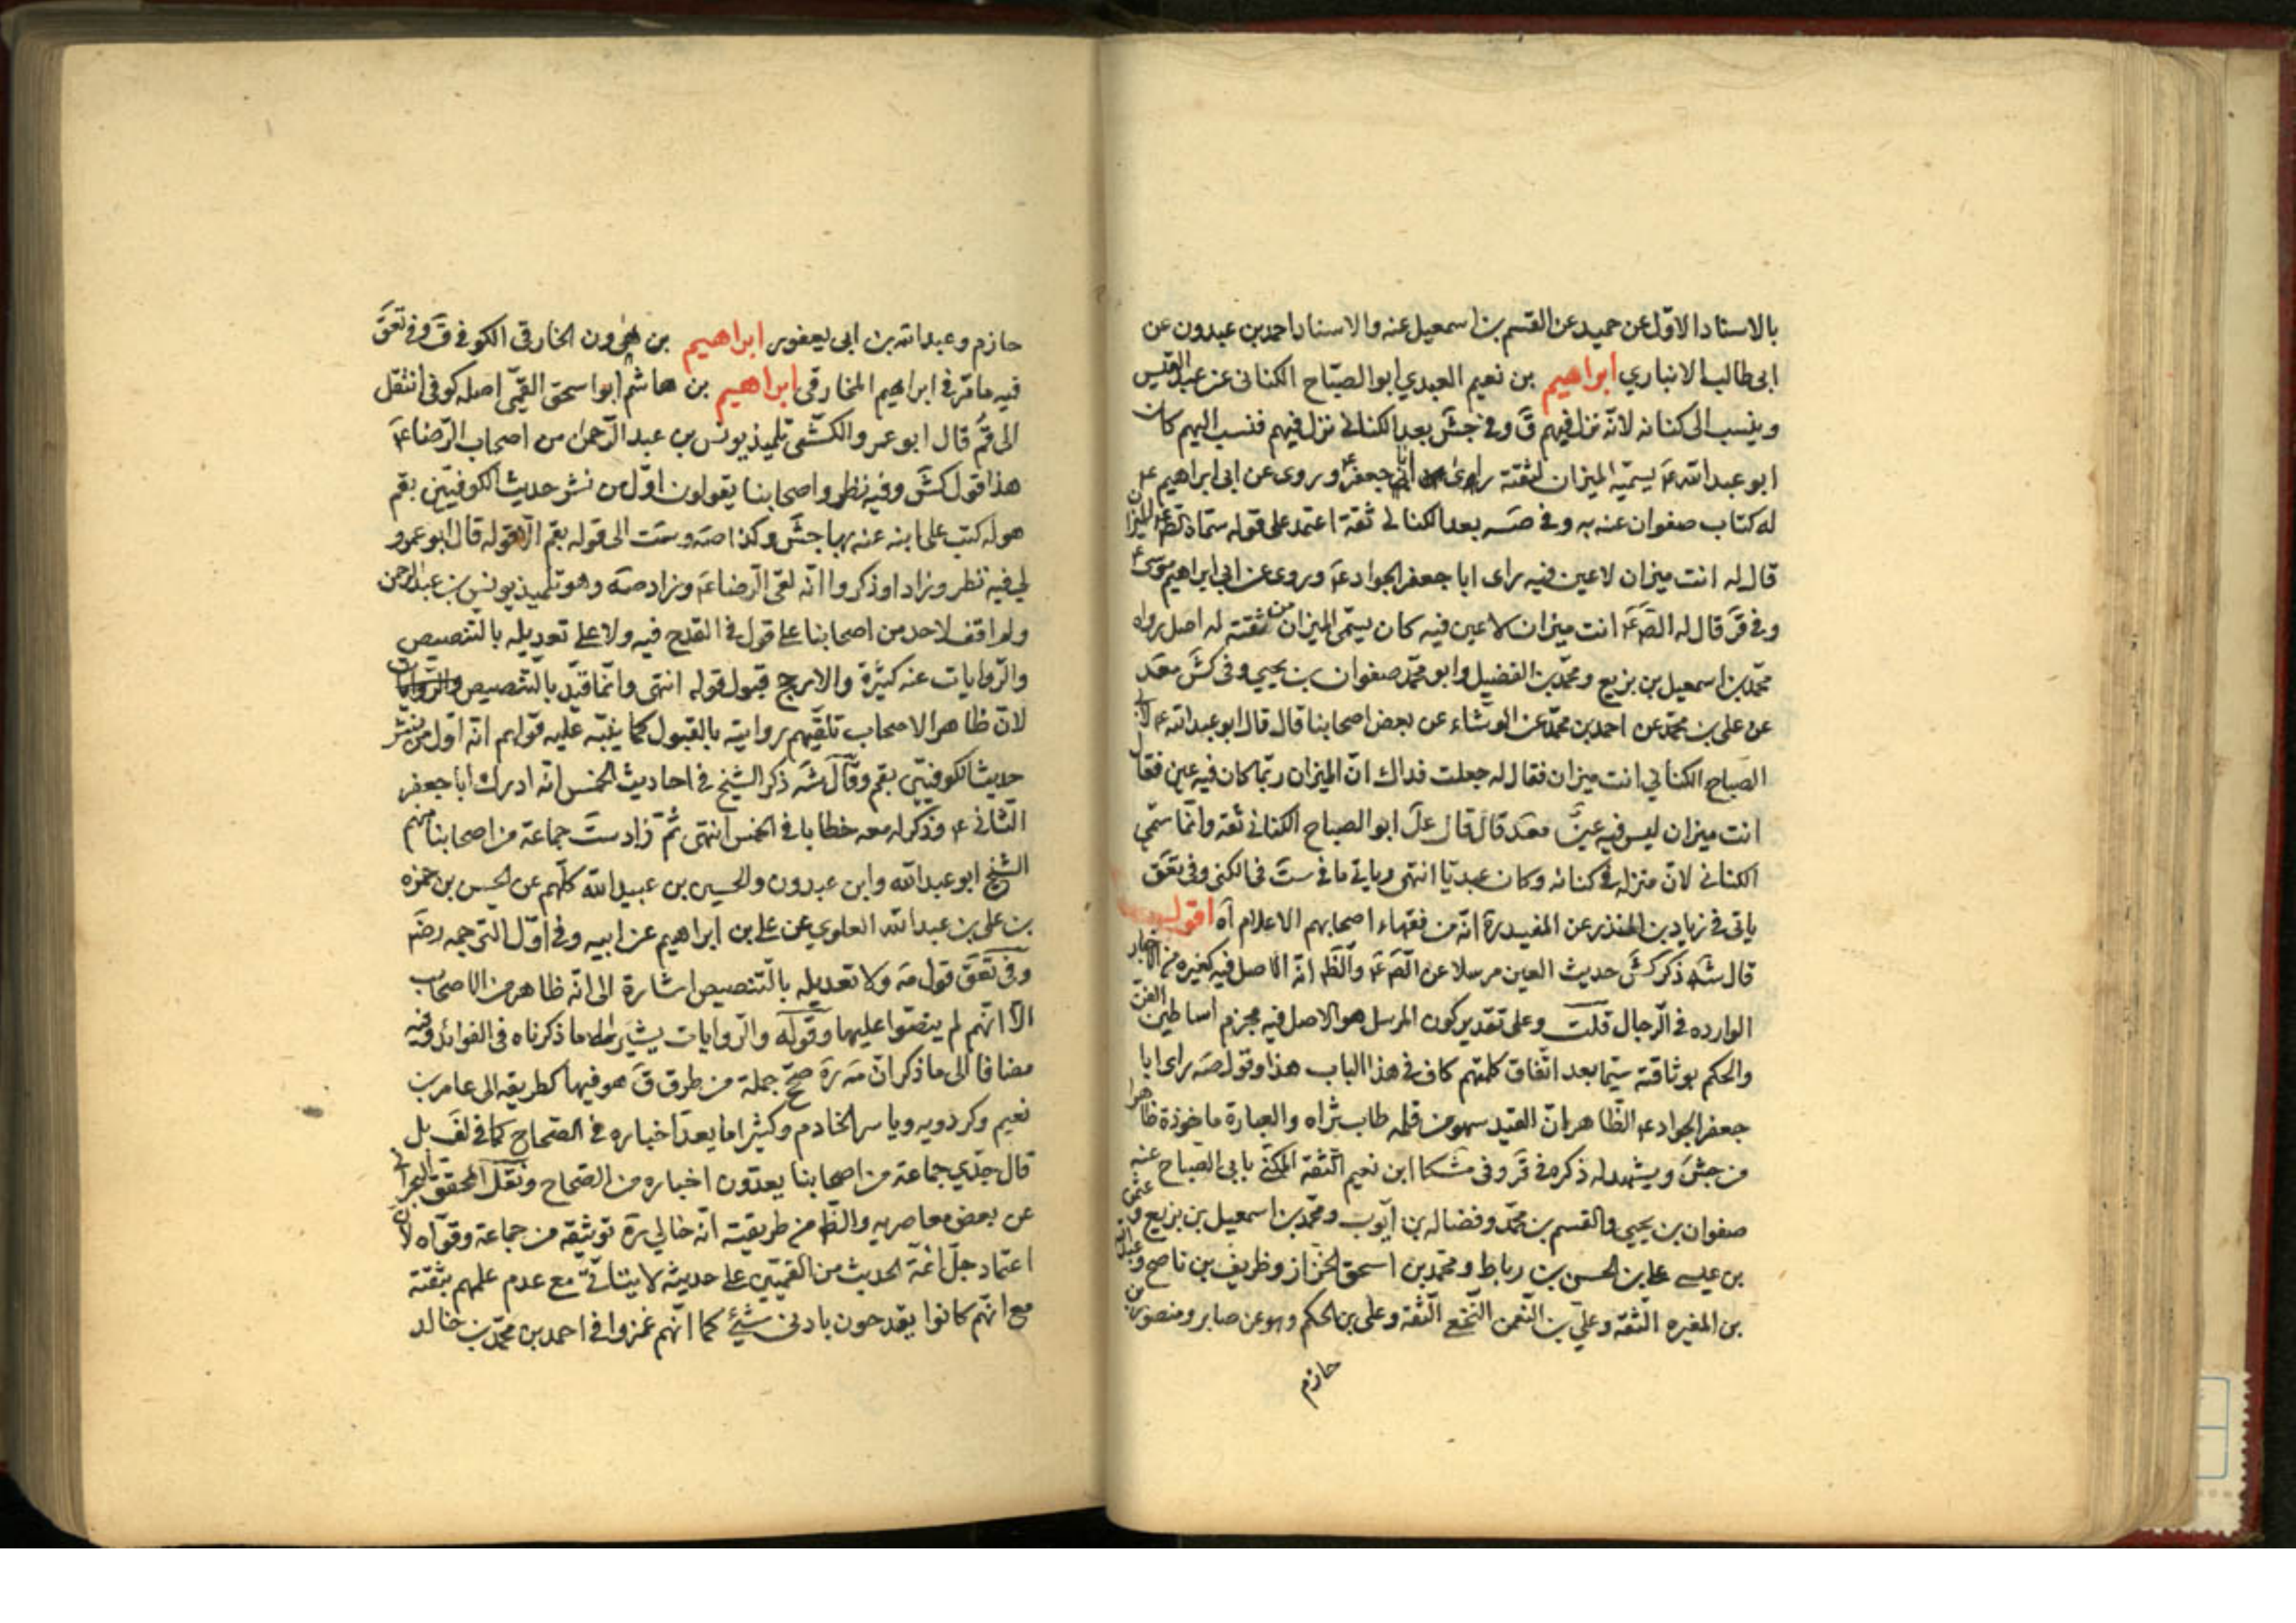 بالاسناد الاوّل عن حميد عن القسم بن اسمعيل عنه والاسناد احمد بن عبدون عن
ابى طالب الانباري ابراهيم بن نعيم العبدي ابو الصبّاح الكنانى عن عبد القيس
وينسب الى كنانه لانّه نزل فيهم قَ وفي جشَ بعد الكنانے نزل فيهم فنسب اليهم كان
ابو عبد اللّه عَ يسمّيه الميزان لثقته راى ابا جعفر عَ وروى عن ابى ابراهيم عَ
له كتاب صفوان عنه به وفي صَه بعد الكنانے ثقة اعتمد على قوله سمّاه الصّم عَ الميزان
قال له انت ميزان لا عين فيه راى ابا جعفر الجواد عَ وروى عن ابى ابراهيم موسى عَ
وفي قَر قال له الصّم عَ انت ميزان لا عين فيه كان يسمّى الميزان من ثقته له اصل رواه
محمّد بن اسمعيل بن بزيع ومحمّد بن الفضيل وابو محمّد صفوان بن يحيى وفى كَش معَد
عن على بن محمّد عن احمد بن محمّد عن الوشّاء عن بعض اصحابنا قال قال ابو عبد اللّه عَ لابى
الصباح الكناني انت ميزان فقال له جعلت فداك انّ الميزان ربّما كان فيه عين فقال
انت ميزان ليس فيه عين معَد قال قال علَ ابو الصباح الكنانے ثقه وانّما سمّي
الكنانى لانّ منزله في كنانه وكان عبديّا انتهى وياتے ما في ستَ فى الكنى وفى تعَق
ياتى في زياد بن المنذر عن المفيد رة انّه من فقهاء اصحابهم الاعلام آه اقول
قال شَه ذكر كَش حديث العين مرسلا عن الصّم عَ والظَم انّه الاصل فيه كغيره من الاخبار
الوارده في الرّجال قلت وعلى تقدير كون المرسل هو الاصل فيه فجزم اساطين الفنّ
والحكم بوثاقته سيّما بعد اتّفاق كلمتهم كاف في هذا الباب هذا وقول صَه راى ابا
جعفر الجواد عَ الظّاهر انّ القيد سهو من قلمه طاب ثراه والعبارة ماخوذة ظاهرا
من جشَ ويشهد له ذكره في قَر وفى مشكا ابن نعيم الثّقة المكنّى بابى الصباح عنه
صفوان بن يحيى والقسم بن محمّد وفضاله بن ايّوب ومحمّد بن اسمعيل بن بزيع وعثمن
بن عيسے على بن الحسن بن رباط ومحمّد بن اسحق الخزاز وظريف بن ناصح وعبد اللّه
بن المغيره الثّقه وعلى بن النّعمن النّخعى الثّقة وعلى بن الحكم وهو عن صابر ومنصور بن
حازم
حازم وعبد اللّه بن ابى يعفور ابراهيم بن هرون الخارقى الكوفى قَ وفى تعَق
فيه ما مَرّ فى ابراهيم المخارقى ابراهيم بن هاشم ابو اسحق القمّى اصله كوفى انتقل
الى قمّ قال ابو عمرو الكشّى تلميذ يونس بن عبد الرّحمن من اصحاب الرّضا عَ
هذا قول كَش وفيه نظر واصحابنا يقولون اوّل من نشر حديث الكوفيّين بقم
هو له كتب على ابنه عنه بها جشَ وكذا صَه وستَ الى قوله بقم الّا قوله قال ابو عمرو
لي فيه نظر وزادا وذكروا انّه لقى الرّضا عَ وزاد صَه وهو تلميذ يونس بن عبد الرّحمن
ولم اقف لاحد من اصحابنا على قول في القدح فيه ولا على تعديله بالتّنصيص
والرّوايات عنه كثيرة والارجح قبول قوله انتهى وانّما قيّد بالتّنصيص
لانّ ظاهر الاصحاب تلقّيهم روايته بالقبول كما ينبّه عليه قولهم انّه اوّل من نشر
حديث الكوفيّين بقم وقال شَه ذكر الشيخ في احاديث الخمس انّه ادرك ابا جعفر
الثّانى عَ وذكر له معه خطابا في الخمس انتهى ثمّ زاد ستَ جماعة من اصحابنا منهم
الشيخ ابو عبد اللّه وابن عبدون والحسين بن عبيد اللّه كلّهم عن الحسن بن حمزه
بن على بن عبد اللّه العلوي عن على بن ابراهيم عن ابيه وفى اوّل التّرجمه رضَه
وفى تعَق قول مَه ولا تعديله بالتّنصيص اشارة الى انّه ظاهر من الاصحاب
الّا انّهم لم ينصّوا عليها وقوله والرّوايات يشير الى ما ذكرناه فى الفوائد
مضافا الى ما ذكر انّ مَه رة صحّح جملة من طرق قَ هو فيها كطريقه الى عامر بن
نعيم وكردويه وياسر الخادم وكثيرا ما يعدّ اخباره في الصّحاح كما في لفَ بل
قال جدّي جماعة من اصحابنا يعدّون اخباره من الصّحاح ونقل المحقّق البحرانے
عن بعض معاصريه والظّم من طريقته انّه خالي رة توثيقه من جماعة وقوّاه لانّ
اعتماد جلّ ائمّة الحديث من القمّيّين على حديثه لا يتاتّى مع عدم علمهم بثقته
مع انّهم كانوا يقدحون بادنى شيئ كما انّهم غمزوا في احمد بن محمّد بن خالد